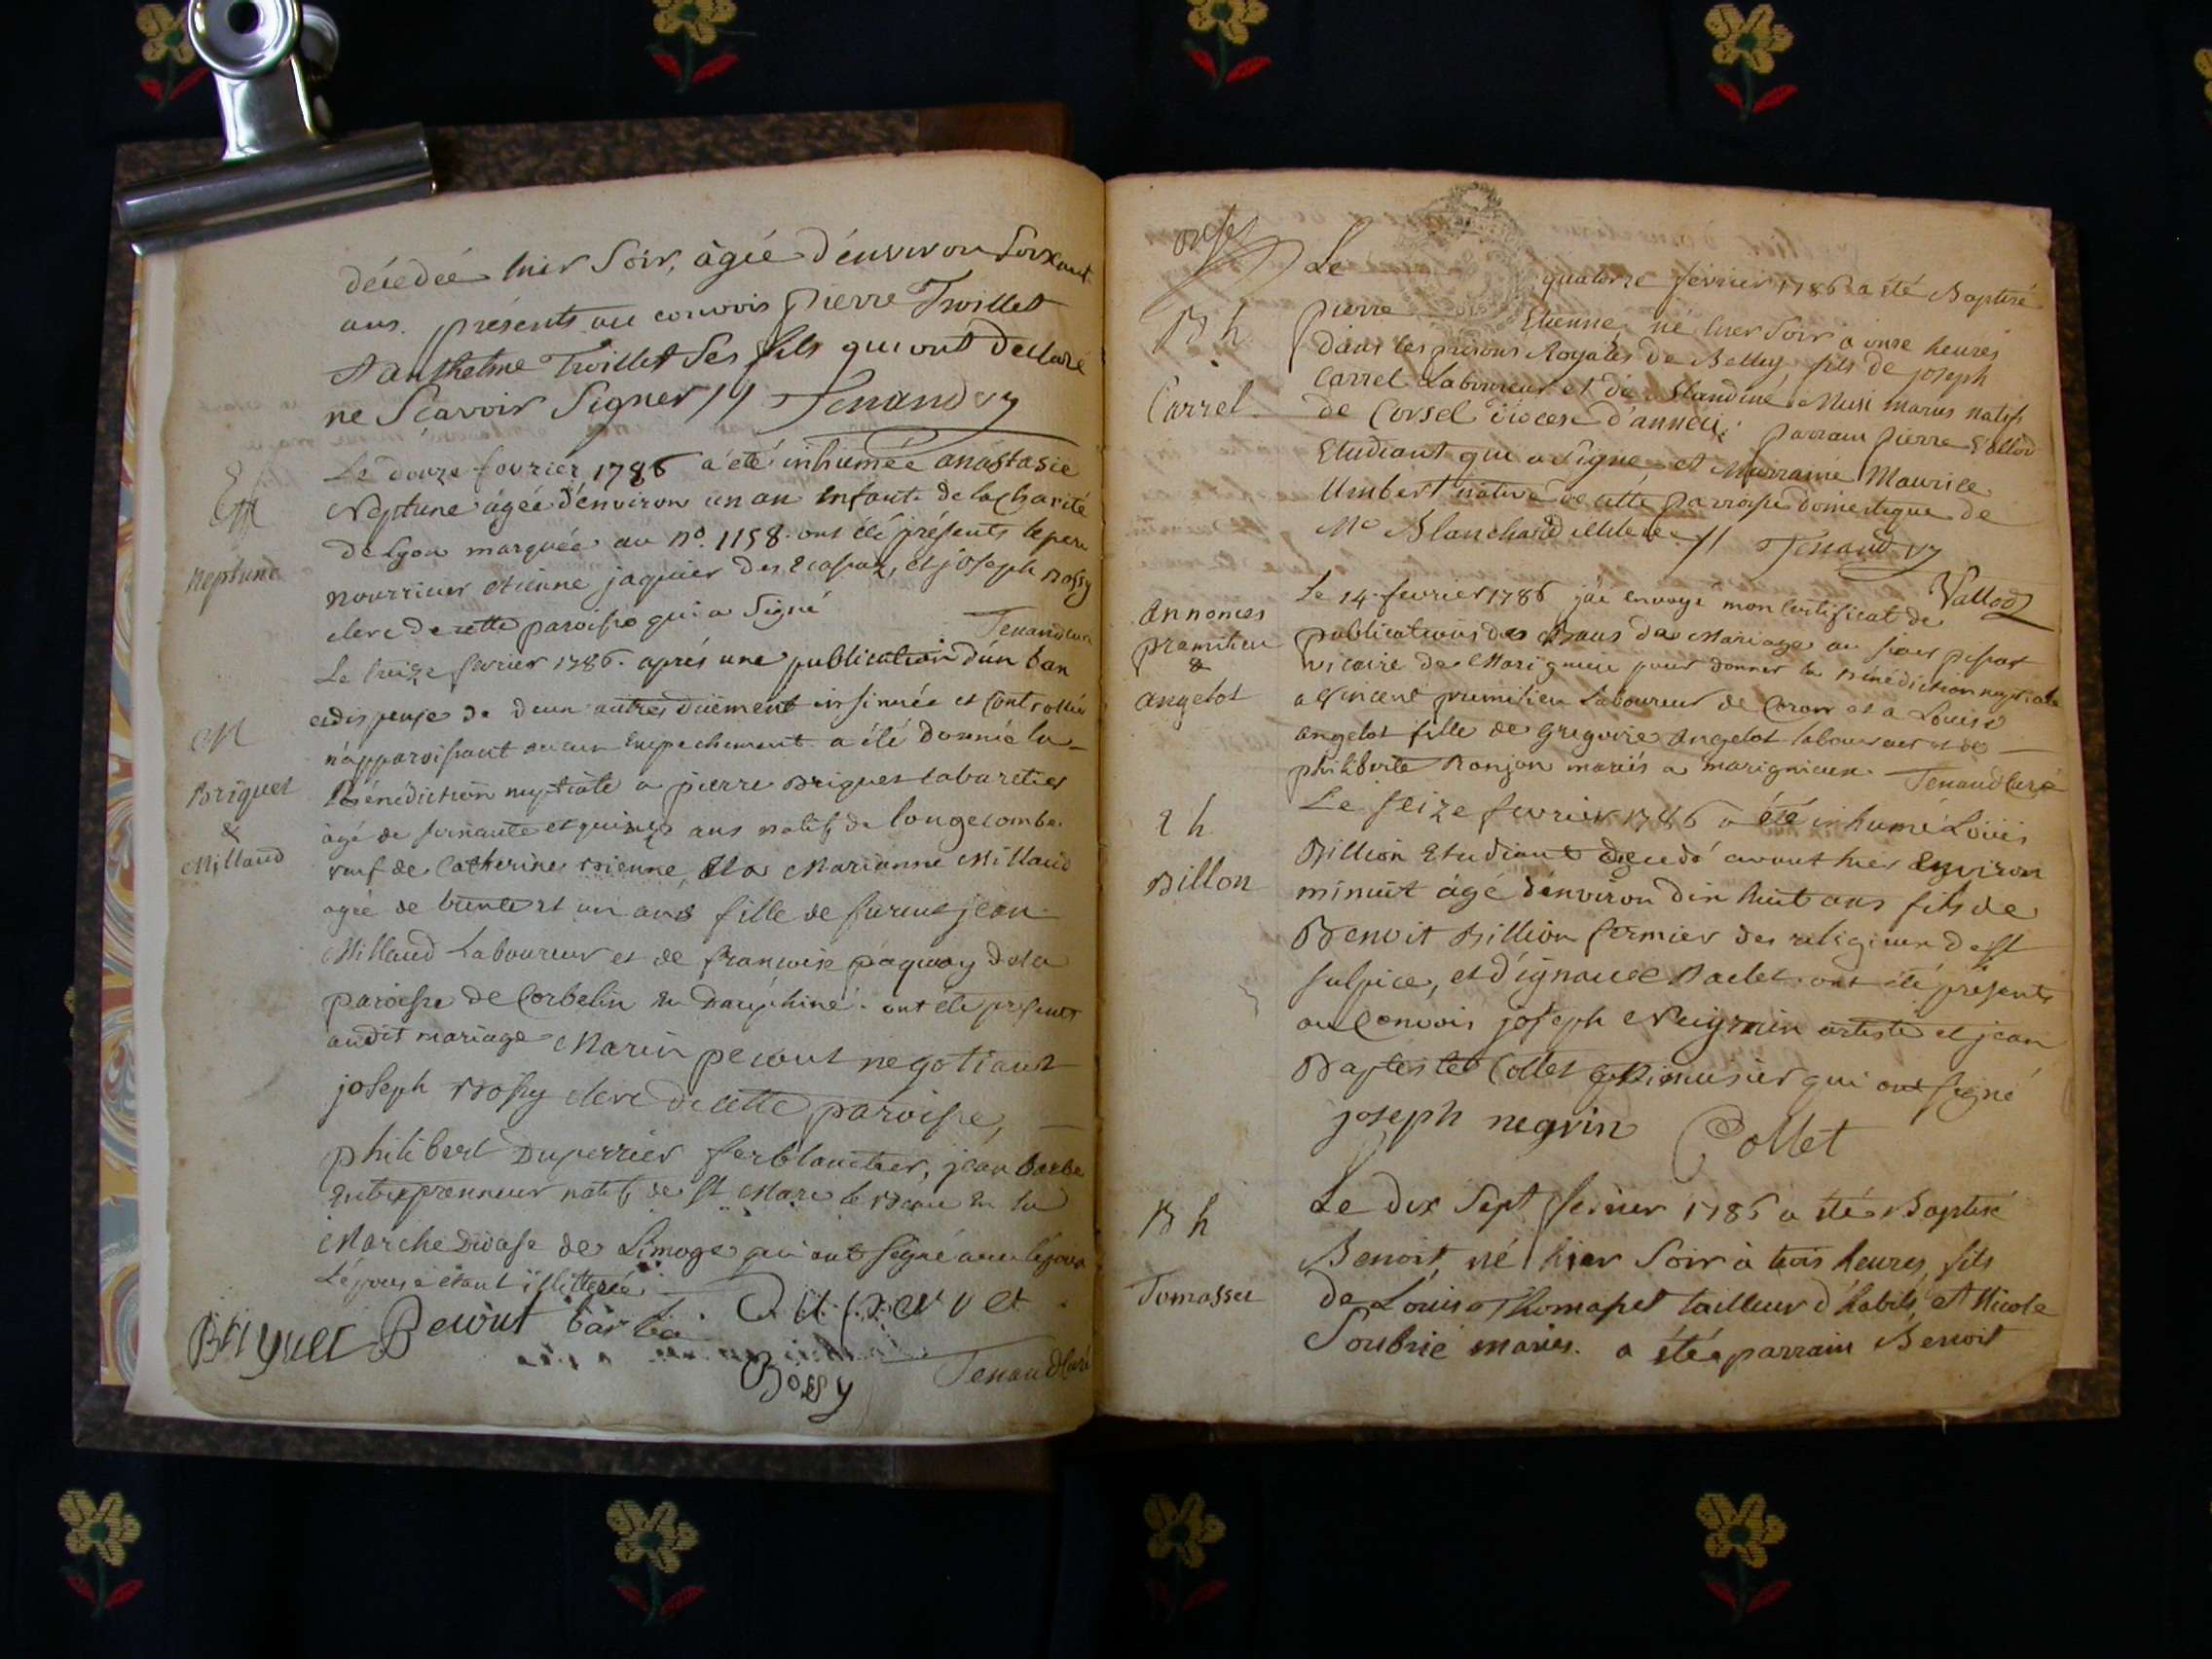 décedeé hier Soir, agéé d'énviron Soixant
ans. présents au convois pierre Twillet
et anthelme Twillet Ses fils qui ont déclaré
ne Sçavoir Signer // Tenand
Neptune
Le douze fevrier 1786 a été inhumée anastasie
Neptune agéé d'énviron un an Enfant de la Charité
de Lyon marquée au No. 1158. ont été présents le pere
nourricier etienne jaquier des Ecassaz, et joseph Bossy
clerc de cette paroisse qui a Signé
Tenand curé
M
Briquet
&
Millaud
Le treize fevrier 1786. aprés une publication d'un ban
et dispense de deux autres duement insinuée et Controllée
n'apparoissant aucun Empechement a été donnée la
Bénédiction nuptiale a pierre Briquet Cabaretier
agé de soixante et quinze ans natif de longecombe
veuf de Catherine Vienne, et a Marianne Millaud
agée de trente et un ans fille de fureut jean
Millaud Laboureur et de francoise paquay de la
paroisse de Corbelin en Dauphiné. ont été présents
audit mariage Marin pecout negotiant
joseph Bossy clerc de cette paroisse,
philibert Duperrier ferblantier, jean barba
Entreprenneur natif de St Marc le en la
Marche Diocese de Limoge qui ont Signé avec l'époux
L'épouse étant illitterée
Briquet Pecout barba Duperrier
Bossy Tenand Curé
B h
Carrel
Le quatorze fevrier 1786 a été Baptisé
pierre Etienne, né hier Soir a onze heures
dans les prisons Royales de Belley fils de joseph
Carrel Laboureur et de Claudine Musi mariés natifs
de Corsel diocese d'anneci; parrain pierre Vallod
Etudiant qui a Signé et Marraine Maurice
Umbert native de cette parroisse domestique de
Mr Blanchard // Tenand
Vallod
Annonces
premilieu
&
angelot
Le 14. fevrier 1786 j'ai envoyé mon Certificat de
publications des Bans de Mariage au sieur
vicaire de Marignieu pour donner la Bénédiction nuptiale
a Vincent premilieu Laboureur de Coron et a Louise
angelot fille de Gregoire Angelot laboureur et de
philiberte Ronjon mariés a marignieux. Tenand Curé
E h
Billon
Le Seize fevrier 1786 a été inhumé Loüis
Billion Etudiant décedé avant hier Environ
minuit agé d'énviron dix huit ans fils de
Benoit Billion fermier des religieux de St
Sulpice, et d'ignauce Baclet. ont été présents
au Convois joseph Neigrin artiste et jean
Baptiste Collet qui ont signé
joseph negrin Collet
B h
Tomasset
Le dix Sept fevrier 1786 a été Baptisé
Benoit né hier Soir à trois heures, fils
de Louis Thomasset tailleur d'habits, et Nicole
Soubrié mariés. a été parrain Benoit